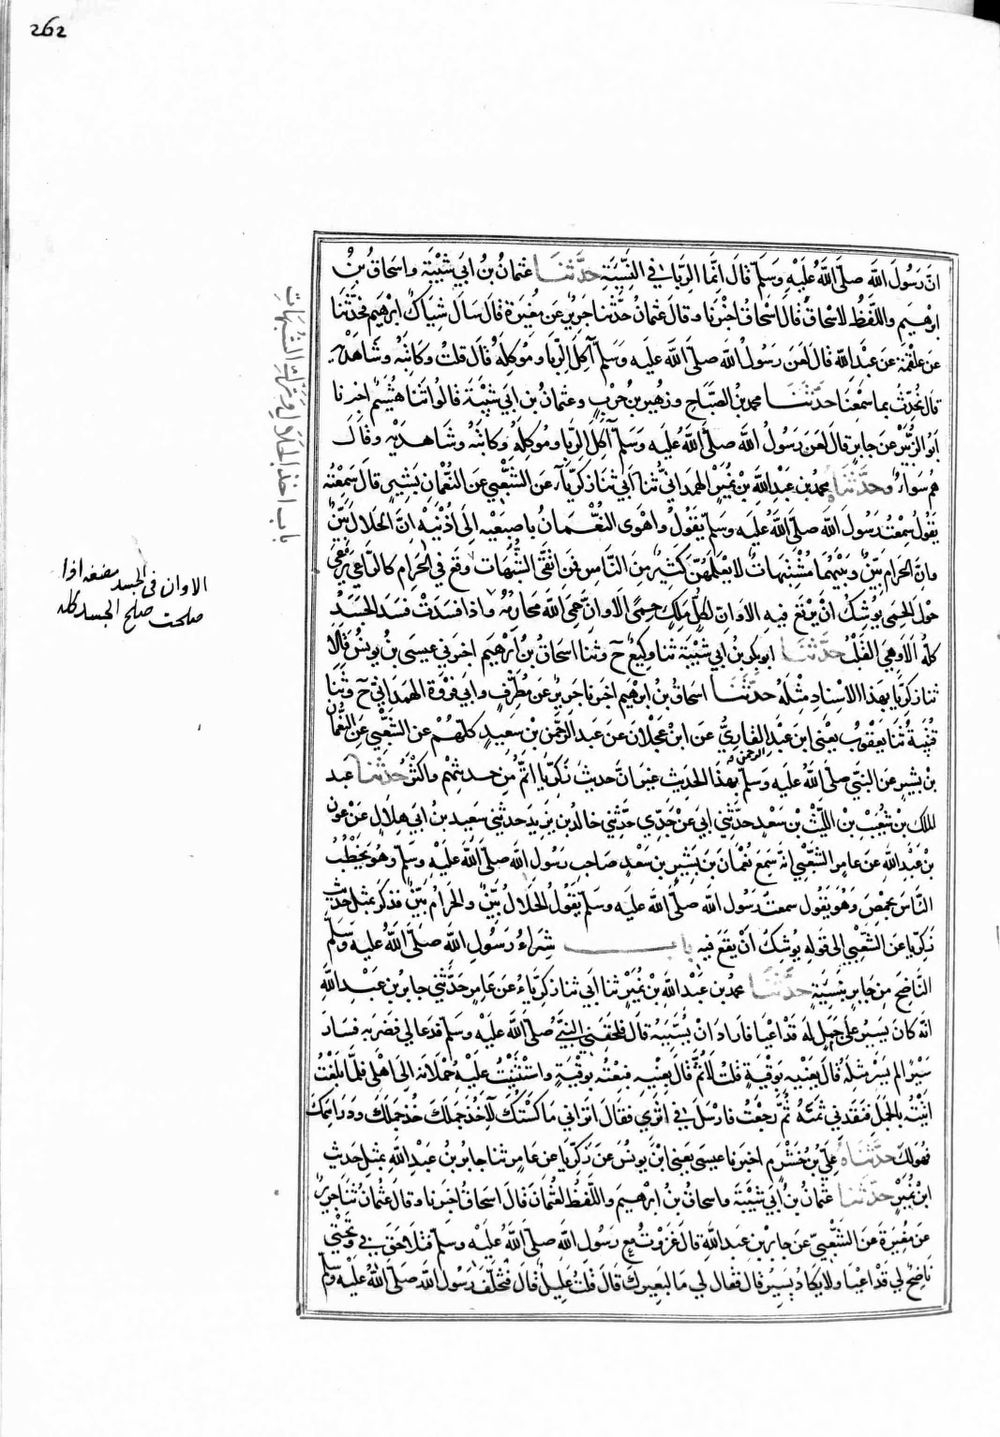 262
ان رسول الله صلى الله عليه وسلم قال انما الربا في النسيئة حدثنا عثمان بن ابي شيبة واسحاق بن
ابرهيم واللفظ لاسحاق قال اسحاق اخبرنا وقال عثمان حدثنا جرير عن مغيرة قال سال شباك ابرهيم فحدثنا
عن علقمة عن عبد الله قال لعن رسول الله صلى الله عليه وسلم آكل الربا وموكله قال قلت وكاتبه وشاهديه
قال نحدث بما سمعنا حدثنا محمد بن الصباح وزهير بن حرب وعثمان بن ابي شيبة قالوا ثنا هشيم اخبرنا
ابو الزبير عن جابر قال لعن رسول الله صلى الله عليه وسلم آكل الربا وموكله وكاتبه وشاهديه وقال
هم سواء وحدثنا محمد بن عبد الله بن نمير الهمداني ثنا ابي ثنا زكرياء عن الشعبي عن النعمان بن بشير قال سمعته
يقول سمعت رسول الله صلى الله عليه وسلم يقول واهوى النعمان باصبعيه الى اذنيه ان الحلال بين
وان الحرام بين وبينهما مشتبهات لا يعلمهن كثير من الناس فمن اتقى الشبهات وقع في الحرام كالراعي يرعى
حول الحمى يوشك ان يرتع فيه الا وان لكل ملك حمى الا وان حمى الله محارمه واذا فسدت فسد الجسد
كله الا وهي القلب حدثنا ابو بكر بن ابي شيبة ثنا وكيع ح وثنا اسحاق بن ابرهيم اخبرني عيسى بن يونس قالا
ثنا زكريا بهذا الاسناد مثله حدثنا اسحاق بن ابرهيم اخبرنا جرير عن مطرف وابي فروة الهمداني ح وثنا
قتيبة ثنا يعقوب يعني ابن عبد القاري عن ابن عجلان عن عبد الرحمن بن سعيد كلهم عن الشعبي عن النعمان
الرحمن
بن بشير عن النبي صلى الله عليه وسلم بهذا الحديث غير ان حديث زكريا اتم من حديثهم واكثر حدثنا عبد
الملك بن شعيب بن الليث بن سعد حدثني ابي عن جدي حدثني خالد بن يزيد حدثني سعيد بن ابي هلال عن عون
بن عبد الله عن عامر الشعبي انه سمع نعمان بن بشير بن سعد صاحب رسول الله صلى الله عليه وسلم وهو يخطب
الناس بحمص وهو يقول سمعت رسول الله صلى الله عليه وسلم يقول الحلال بين والحرام بين فذكر بمثل حديث
زكريا عن الشعبي الى قوله يوشك ان يقع فيه باب شراء رسول الله صلى الله عليه وسلم
الناضح من جابر بنسيئة حدثنا محمد بن عبد الله بن نمير ثنا ابي ثنا زكرياء عن عامر حدثني جابر بن عبد الله
انه كان يسير على جمل له قد اعيا فاراد ان يسيبه قال فلحقني النبي صلى الله عليه وسلم فدعا لي فضربه فسار
سيرا لم يسر مثله قال بعنيه بوقية قلت لا ثم قال بعنيه فبعته بوقية واستثنيت عليه حملانه الى اهلي فلما بلغت
اتيته بالجمل فنقدني ثمنه ثم رجعت فارسل في اثري فقال اتراني ماكستك لآخذ جملك خذ جملك ودراهمك
فهو لك حدثناه علي بن خشرم اخبرنا عيسى يعني ابن يونس عن زكريا عن عامر ثنا جابر بن عبد الله بمثل حديث
ابن نمير حدثنا عثمان بن ابي شيبة واسحاق بن ابرهيم واللفظ لعثمان قال اسحاق اخبرنا وقال عثمان ثنا جرير
عن مغيرة عن الشعبي عن جابر بن عبد الله قال غزوت مع رسول الله صلى الله عليه وسلم فتلاحق بي وتحتي
ناضح لي قد اعيا ولا يكاد يسير قال فقال لي ما لبعيرك قال قلت عليل قال فتخلف رسول الله صلى الله عليه وسلم
باب اخذ الحلال وترك الشبهات
الا وان في الجسد مضغه اذا
صلحت صلح الجسد كله